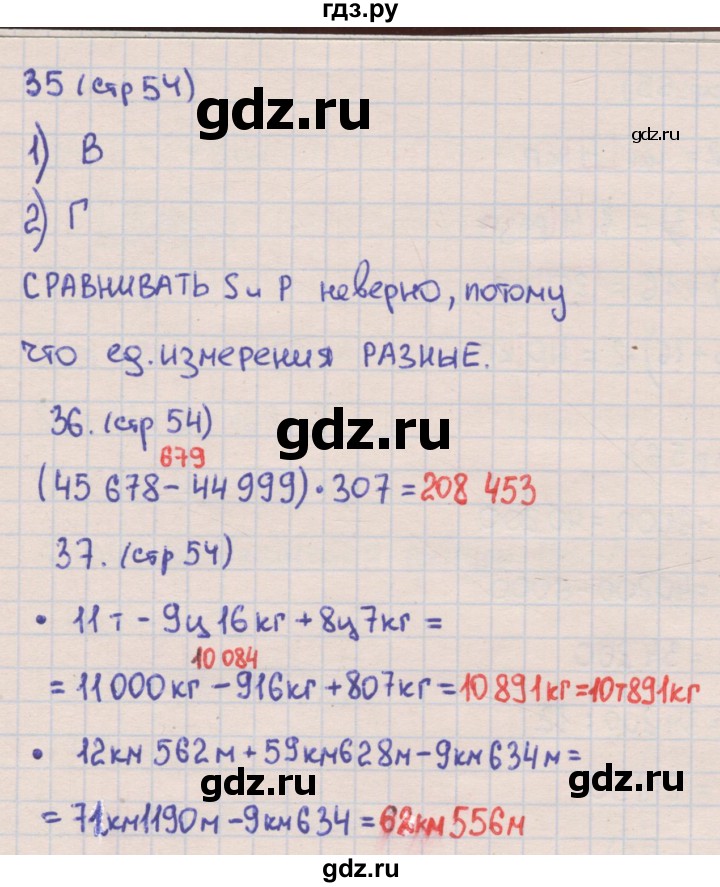 гдз.ру
35 (стр 54)
gdz.ru
gdz.ru
1) В
2) Г
СРАВНИВАТЬ S и P неверно, потому
что ед. измерения РАЗНЫЕ.
36. (стр 54)
gdz.ru
679
(45 678 – 44 999) · 307 = 208 453
37. (стр 54)
• 11т – 9ц 16кг + 8ц 7кг =
10 084
= 11 000кг – 916кг + 807кг = 10 891кг = 10т891кг
• 12км 562м + 59км 628м – 9км 634м =
gdz.ru
gdz.ru
= 71км1190м – 9км 634 = 62км 556м
gdz.ru